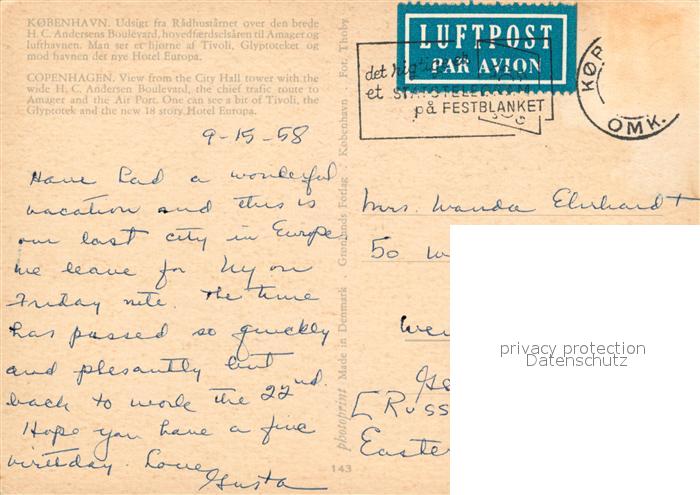 KØBENHAVN. Udsigt fra Rådhustårnet over den brede
H. C. Andersens Boulevard, hovedfærdselsåren til Amager og
lufthavnen. Man ser et hjørne af Tivoli, Glyptoteket og
mod havnen det nye Hotel Europa.
COPENHAGEN. View from the City Hall tower with the
wide H. C. Andersen Boulevard, the chief trafic route to
Amager and the Air Port. One can see a bit of Tivoli, the
Glyptotek and the new 18 story Hotel Europa.
9-15-58
Have had a wonderful
vacation and this is
our last city in Europe
we leave for Ny on
Friday nite. The time
has passed so quickly
and plesantly but
back to work the 22nd.
Hope you have a fine
birthday. Love
Gusta
photoprint Made in Denmark · Grønlunds Forlag · København · Fot. Thoby
143
LUFTPOST
PAR AVION
det rigtige er
et STATSTELEGRAM
på FESTBLANKET
KØP
OMK.
Mrs. Wanda Ehrhardt
50 W
Wei
Ge
[Russ
Easte
privacy protection
Datenschutz